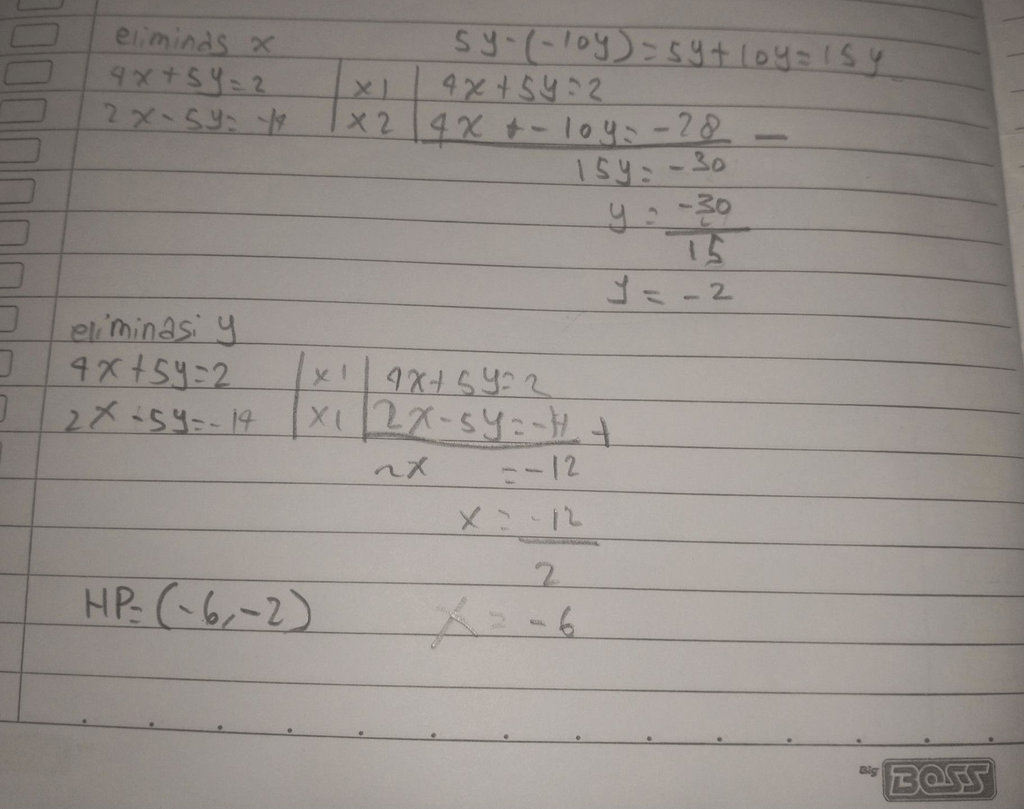 eliminas x 5y-(-10y)=5y+10y=15y
4x+5y=2 | x1 | 4x+5y=2
2x-5y=-14 | x2 | 4x + -10y=-28 -
15y=-30
y=-30
15
y=-2
eliminasi y
4x+5y=2 | x1 | 4x+5y=2
2x-5y=-14 | x1 | 2x-5y=-14 +
2x =-12
x=-12
2
HP=(-6,-2) x=-6
Big BOSS